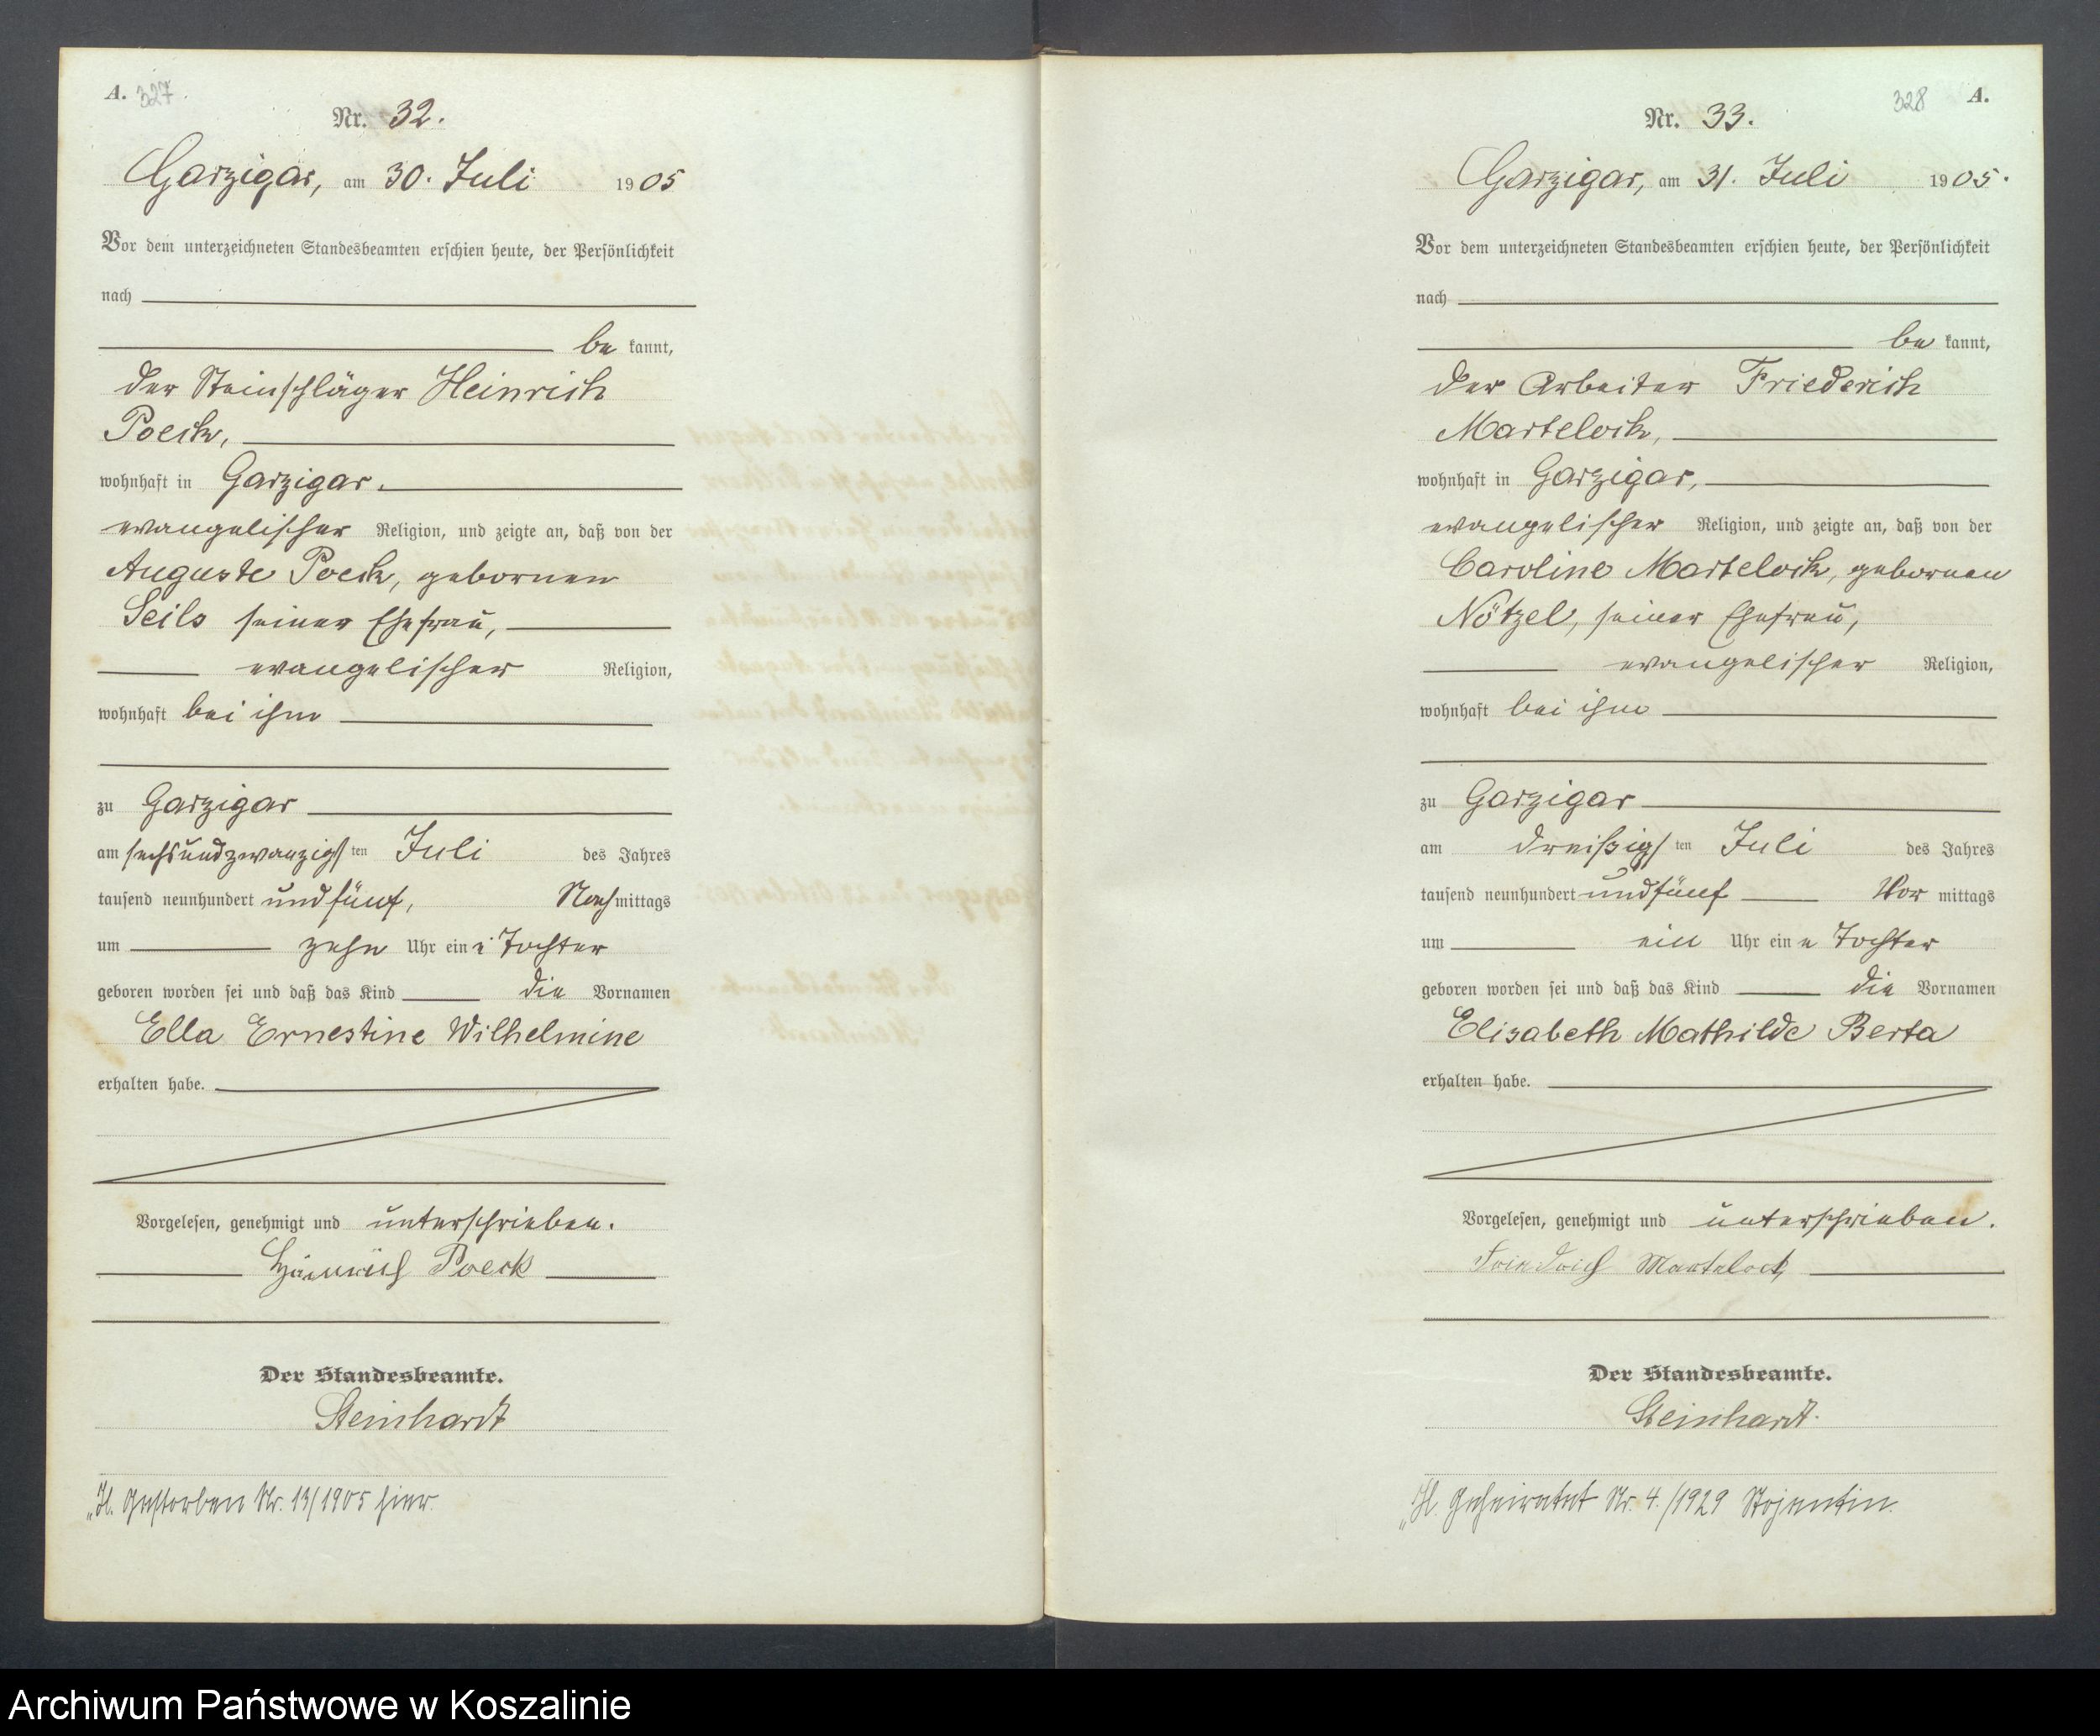 A. 327
Nr. 32.
Garzigar, am 30. Juli 1905
Vor dem unterzeichneten Standesbeamten erschien heute, der Persönlichkeit
nach
be kannt,
der Steinschläger Heinrich
Poeck,
wohnhaft in Garzigar.
evangelischer Religion, und zeigte an, daß von der
Auguste Poeck, gebornen
Seils seiner Ehefrau,
evangelischer Religion,
wohnhaft bei ihm
zu Garzigar
am sechsundzwanzigsten Juli des Jahres
tausend neunhundert und fünf, Nachmittags
um zehn Uhr eine Tochter
geboren worden sei und daß das Kind die Vornamen
Ella Ernestine Wilhelmine
erhalten habe.
Vorgelesen, genehmigt und unterschrieben.
Heinrich Poeck
Der Standesbeamte.
Steinhardt
Gestorben Nr. 13/1905 hier.
328 A.
Nr. 33.
Garzigar, am 31. Juli 1905.
Vor dem unterzeichneten Standesbeamten erschien heute, der Persönlichkeit
nach
be kannt,
der Arbeiter Friederich
Martelock,
wohnhaft in Garzigar,
evangelischer Religion, und zeigte an, daß von der
Caroline Martelock, gebornen
Nötzel, seiner Ehefrau,
evangelischer Religion,
wohnhaft bei ihm
zu Garzigar
am dreißigsten Juli des Jahres
tausend neunhundert und fünf Vor mittags
um ein Uhr eine Tochter
geboren worden sei und daß das Kind die Vornamen
Elisabeth Mathilde Berta
erhalten habe.
Vorgelesen, genehmigt und unterschrieben.
Friedrich Martelock
Der Standesbeamte.
Steinhardt.
Geheiratet Nr. 4./1929 Stojentin.
Archiwum Państwowe w Koszalinie